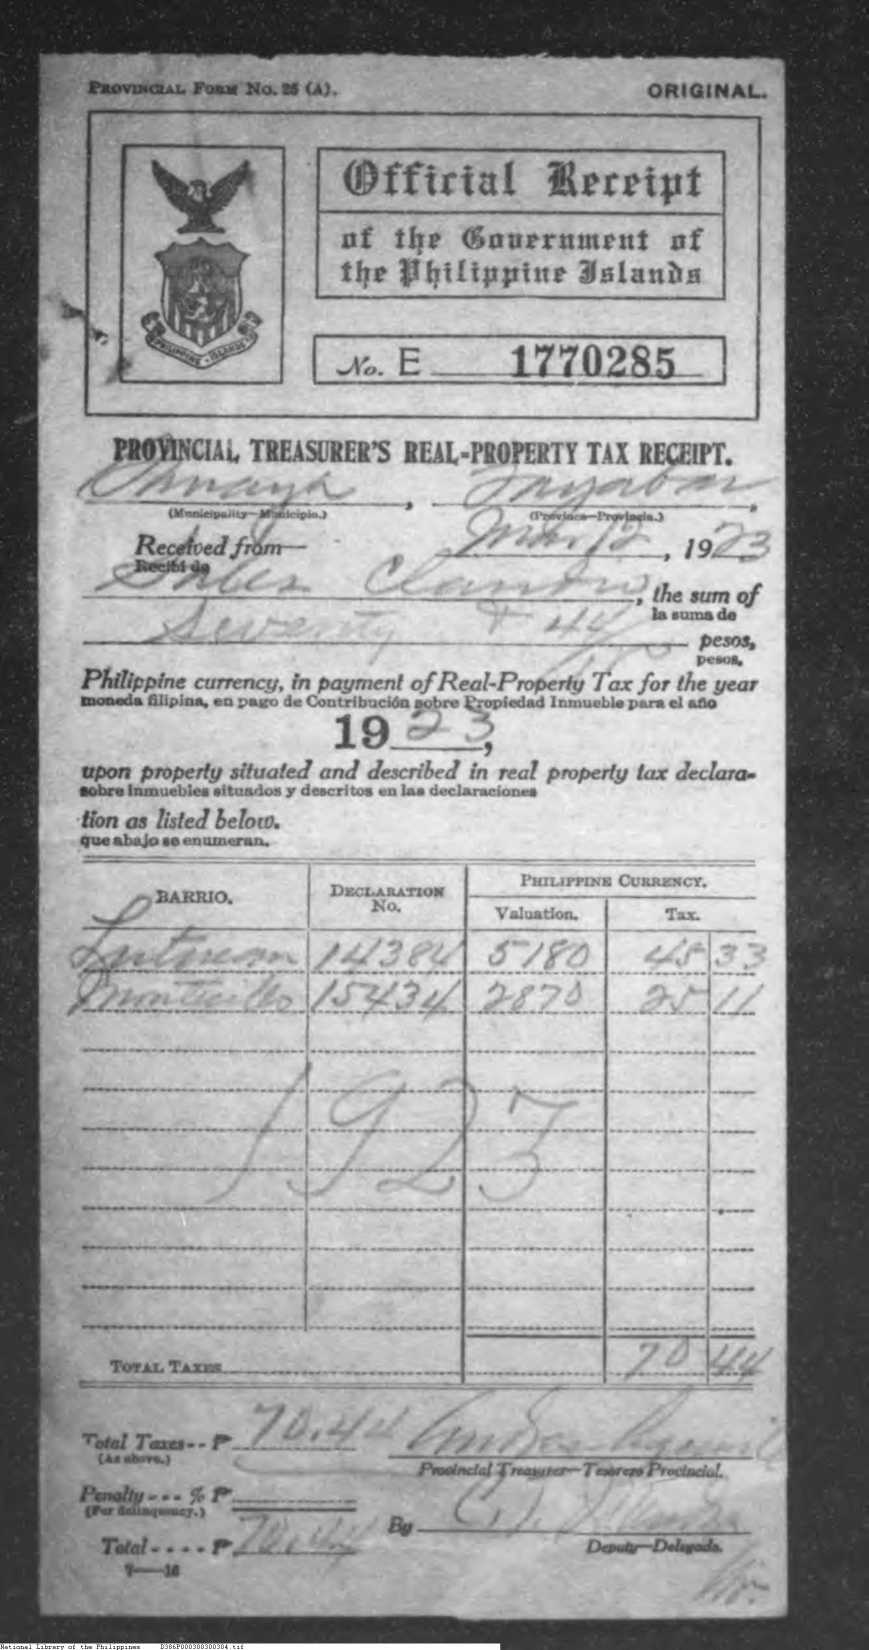 PROVINCIAL FORM NO. 25 (A).
ORIGINAL.
PHILIPPINE ISLANDS
Official Receipt
of the Government of
the Philippine Islands
No. E 1770285
PROVINCIAL TREASURER'S REAL-PROPERTY TAX RECEIPT.
Unisan, Tayabas,
(Municipality—Municipio.) (Province—Provincia.)
Received from— Mar. 12, 1923
Recibí de
the sum of
la suma de
Seventy & 44
pesos,
pesos,
Philippine currency, in payment of Real-Property Tax for the year
moneda filipina, en pago de Contribución sobre Propiedad Inmueble para el año
1923,
upon property situated and described in real property tax declara-
sobre inmuebles situados y descritos en las declaraciones
tion as listed below.
que abajo se enumeran.
BARRIO. DECLARATION No. PHILIPPINE CURRENCY.
Valuation. Tax.
14384 5180 45 33
15434 2870 25 11
1923
TOTAL TAXES 70 44
Total Taxes-- ₱ 70.44
(As above.)
Provincial Treasurer—Tesorero Provincial.
Penalty--- % ₱
(For delinquency.)
By
Total---- ₱ 70.44
Deputy—Delegado.
7—16
National Library of the Philippines D386P000300300304.tif